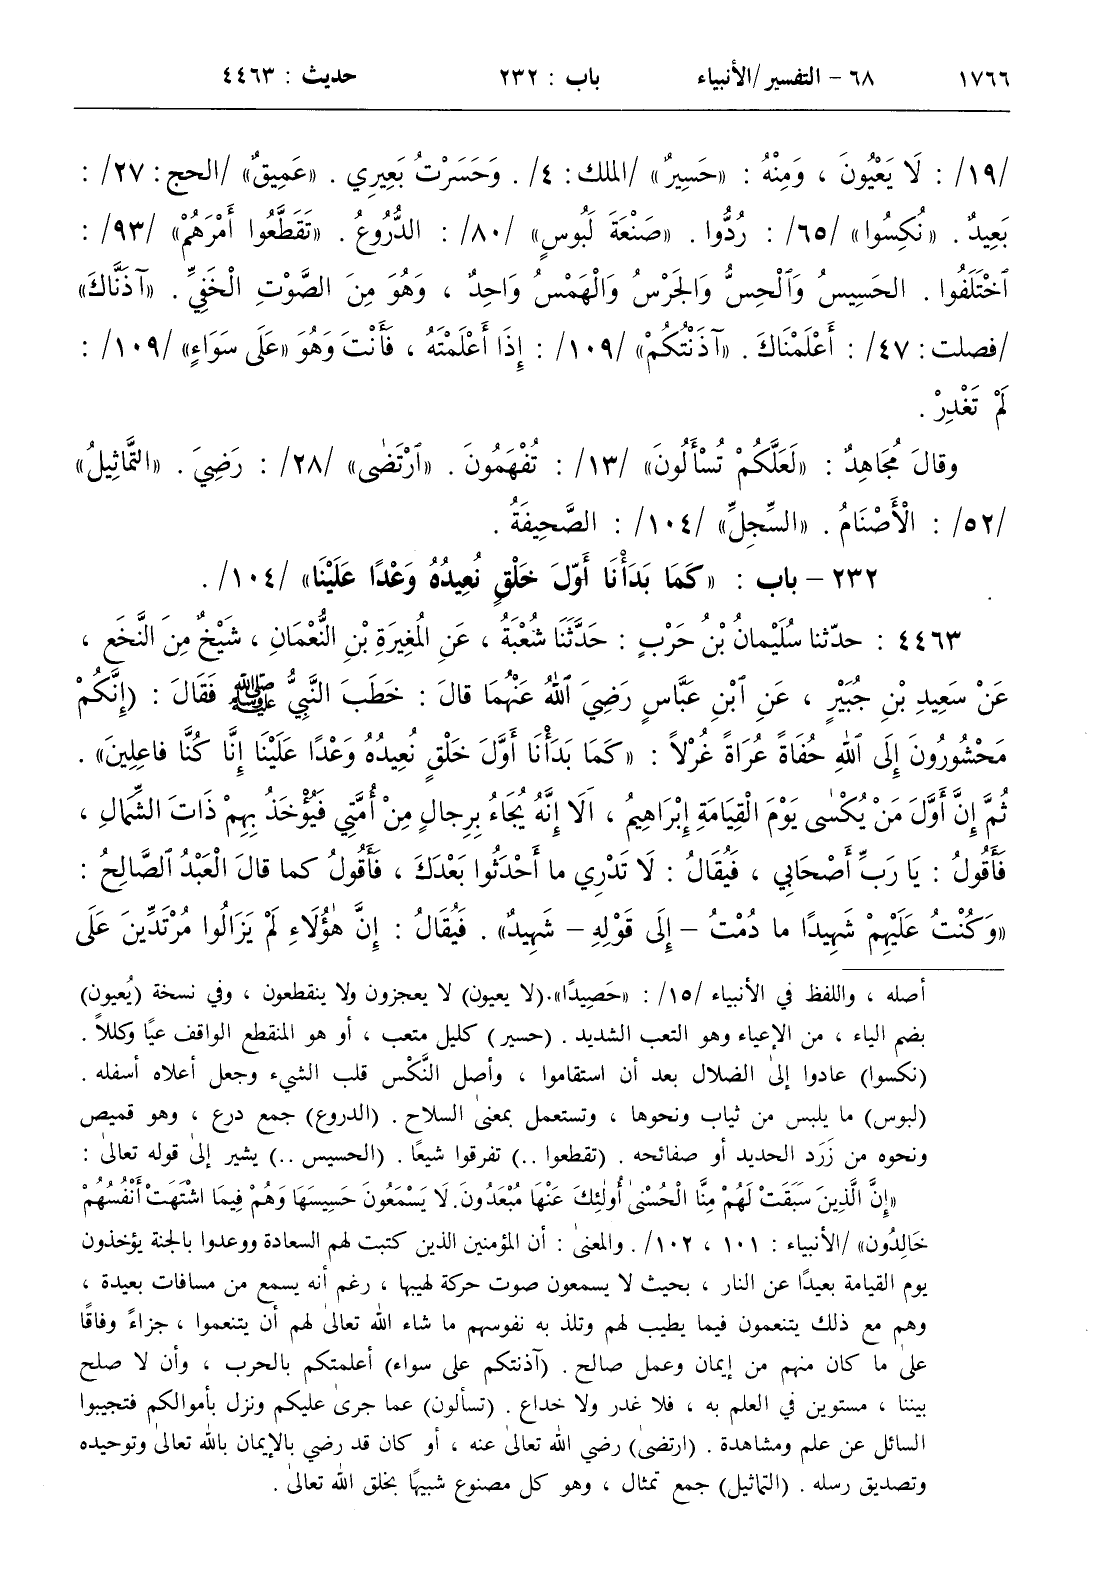 ١٧٦٦ ٦٨ - التفسير/الأنبياء باب : ٢٣٢ حديث : ٤٤٦٣
/١٩/ : لَا يَعْيُونَ ، وَمِنْهُ : «حَسِيرٌ» /الملك : ٤/ . وَحَسَرْتُ بَعِيرِي . «عَمِيقٌ» /الحج : ٢٧/ :
بَعِيدٌ . «نُكِسُوا» /٦٥/ : رُدُّوا . «صَنْعَةَ لَبُوسٍ» /٨٠/ : الدُّرُوعُ . «تَقَطَّعُوا أَمْرَهُمْ» /٩٣/ :
ٱخْتَلَفُوا . الحَسِيسُ وَٱلْحِسُّ وَالجَرْسُ وَالْهَمْسُ وَاحِدٌ ، وَهُوَ مِنَ الصَّوْتِ الْخَفِيِّ . «آذَنَّاكَ»
/فصلت : ٤٧/ : أَعْلَمْنَاكَ . «آذَنْتُكُمْ» /١٠٩/ : إِذَا أَعْلَمْتَهُ ، فَأَنْتَ وَهُوَ «عَلَى سَوَاءٍ» /١٠٩/ :
لَمْ تَغْدِرْ .
وقالَ مُجَاهِدٌ : «لَعَلَّكُمْ تُسْأَلُونَ» /١٣/ : تُفْهَمُونَ . «ٱرْتَضَى» /٢٨/ : رَضِيَ . «التَّمَاثِيلُ»
/٥٢/ : الْأَصْنَامُ . «السِّجِلِّ» /١٠٤/ : الصَّحِيفَةُ .
٢٣٢ - باب : «كَمَا بَدَأْنَا أَوَّلَ خَلْقٍ نُعِيدُهُ وَعْدًا عَلَيْنَا» /١٠٤/ .
٤٤٦٣ : حدّثنا سُلَيْمانُ بْنُ حَرْبٍ : حَدَّثَنَا شُعْبَةُ ، عَنِ المُغِيرَةِ بْنِ النُّعْمَانِ ، شَيْخٌ مِنَ النَّخَعِ ،
عَنْ سَعِيدِ بْنِ جُبَيْرٍ ، عَنِ ٱبْنِ عَبَّاسٍ رَضِيَ ٱللهُ عَنْهُمَا قالَ : خَطَبَ النَّبِيُّ ﷺ فَقَالَ : (إِنَّكُمْ
مَحْشُورُونَ إِلَى ٱللهِ حُفَاةً عُرَاةً غُرْلًا : «كَمَا بَدَأْنَا أَوَّلَ خَلْقٍ نُعِيدُهُ وَعْدًا عَلَيْنَا إِنَّا كُنَّا فاعِلِينَ» .
ثُمَّ إِنَّ أَوَّلَ مَنْ يُكْسَى يَوْمَ الْقِيَامَةِ إِبْرَاهِيمُ ، أَلَا إِنَّهُ يُجَاءُ بِرِجالٍ مِنْ أُمَّتِي فَيُؤْخَذُ بِهِمْ ذَاتَ الشِّمَالِ ،
فَأَقُولُ : يَا رَبِّ أَصْحَابِي ، فَيُقَالُ : لَا تَدْرِي ما أَحْدَثُوا بَعْدَكَ ، فَأَقُولُ كما قالَ الْعَبْدُ الصَّالِحُ :
«وَكُنْتُ عَلَيْهِمْ شَهِيدًا ما دُمْتُ - إِلَى قَوْلِهِ - شَهِيدٌ» . فَيُقَالُ : إِنَّ هٰؤُلَاءِ لَمْ يَزَالُوا مُرْتَدِّينَ عَلَى
أصله ، واللفظ في الأنبياء /١٥/ : «حَصِيدًا».(لا يعيون) لا يعجزون ولا ينقطعون ، وفي نسخة (يُعيون)
بضم الياء ، من الإعياء وهو التعب الشديد . (حسير) كليل متعب ، أو هو المنقطع الواقف عيًا وكللًا .
(نكسوا) عادوا إلى الضلال بعد أن استقاموا ، وأصل النَّكْس قلب الشيء وجعل أعلاه أسفله .
(لبوس) ما يلبس من ثياب ونحوها ، وتستعمل بمعنى السلاح . (الدروع) جمع درع ، وهو قميص
ونحوه من زَرَد الحديد أو صفائحه . (تقطعوا ..) تفرقوا شيعًا . (الحسيس ..) يشير إلى قوله تعالى :
«إِنَّ الَّذِينَ سَبَقَتْ لَهُمْ مِنَّا الْحُسْنَى أُولٰئِكَ عَنْهَا مُبْعَدُونَ. لَا يَسْمَعُونَ حَسِيسَهَا وَهُمْ فِيمَا اشْتَهَتْ أَنْفُسُهُمْ
خَالِدُونَ» /الأنبياء : ١٠١ ، ١٠٢/ . والمعنى : أن المؤمنين الذين كتبت لهم السعادة ووعدوا بالجنة يؤخذون
يوم القيامة بعيدًا عن النار ، بحيث لا يسمعون صوت حركة لهيبها ، رغم أنه يسمع من مسافات بعيدة ،
وهم مع ذلك يتنعمون فيما يطيب لهم وتلذ به نفوسهم ما شاء الله تعالى لهم أن يتنعموا ، جزاءً وفاقًا
على ما كان منهم من إيمان وعمل صالح . (آذنتكم على سواء) أعلمتكم بالحرب ، وأن لا صلح
بيننا ، مستوين في العلم به ، فلا غدر ولا خداع . (تسألون) عما جرى عليكم ونزل بأموالكم فتجيبوا
السائل عن علم ومشاهدة . (ارتضى) رضي الله تعالى عنه ، أو كان قد رضي بالإيمان بالله تعالى وتوحيده
وتصديق رسله . (التماثيل) جمع تمثال ، وهو كل مصنوع شبيهًا بخلق الله تعالى .